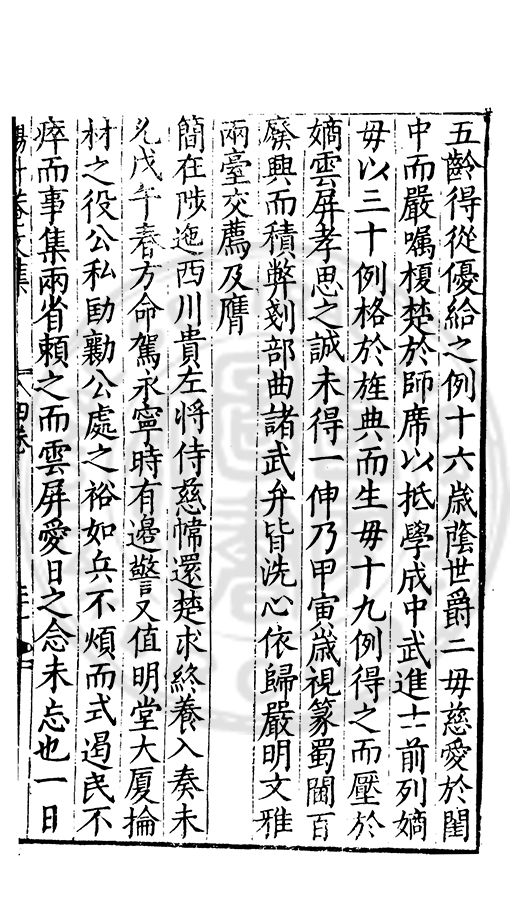 五齡得從優給之例十六歲蔭世爵二毋慈愛於閨
中而嚴囑榎楚於師席以抵學成中武進士前列嫡
毋以三十例格於旌典而生毋十九例得之而壓於
嫡雲屏孝思之誠未得一伸乃甲寅歲視篆蜀閫百
廢興而積弊剗部曲諸武弁皆洗心依歸嚴明文雅
兩臺交薦及膺
簡在陟迤西川貴左將侍慈幃還楚求終養入奏未
允戊午春方命駕永寧時有邊警又值明堂大厦掄
材之役公私劻勷公處之裕如兵不煩而式遏民不
瘁而事集兩省賴之而雲屏愛日之念未忘也一日
文集 四卷